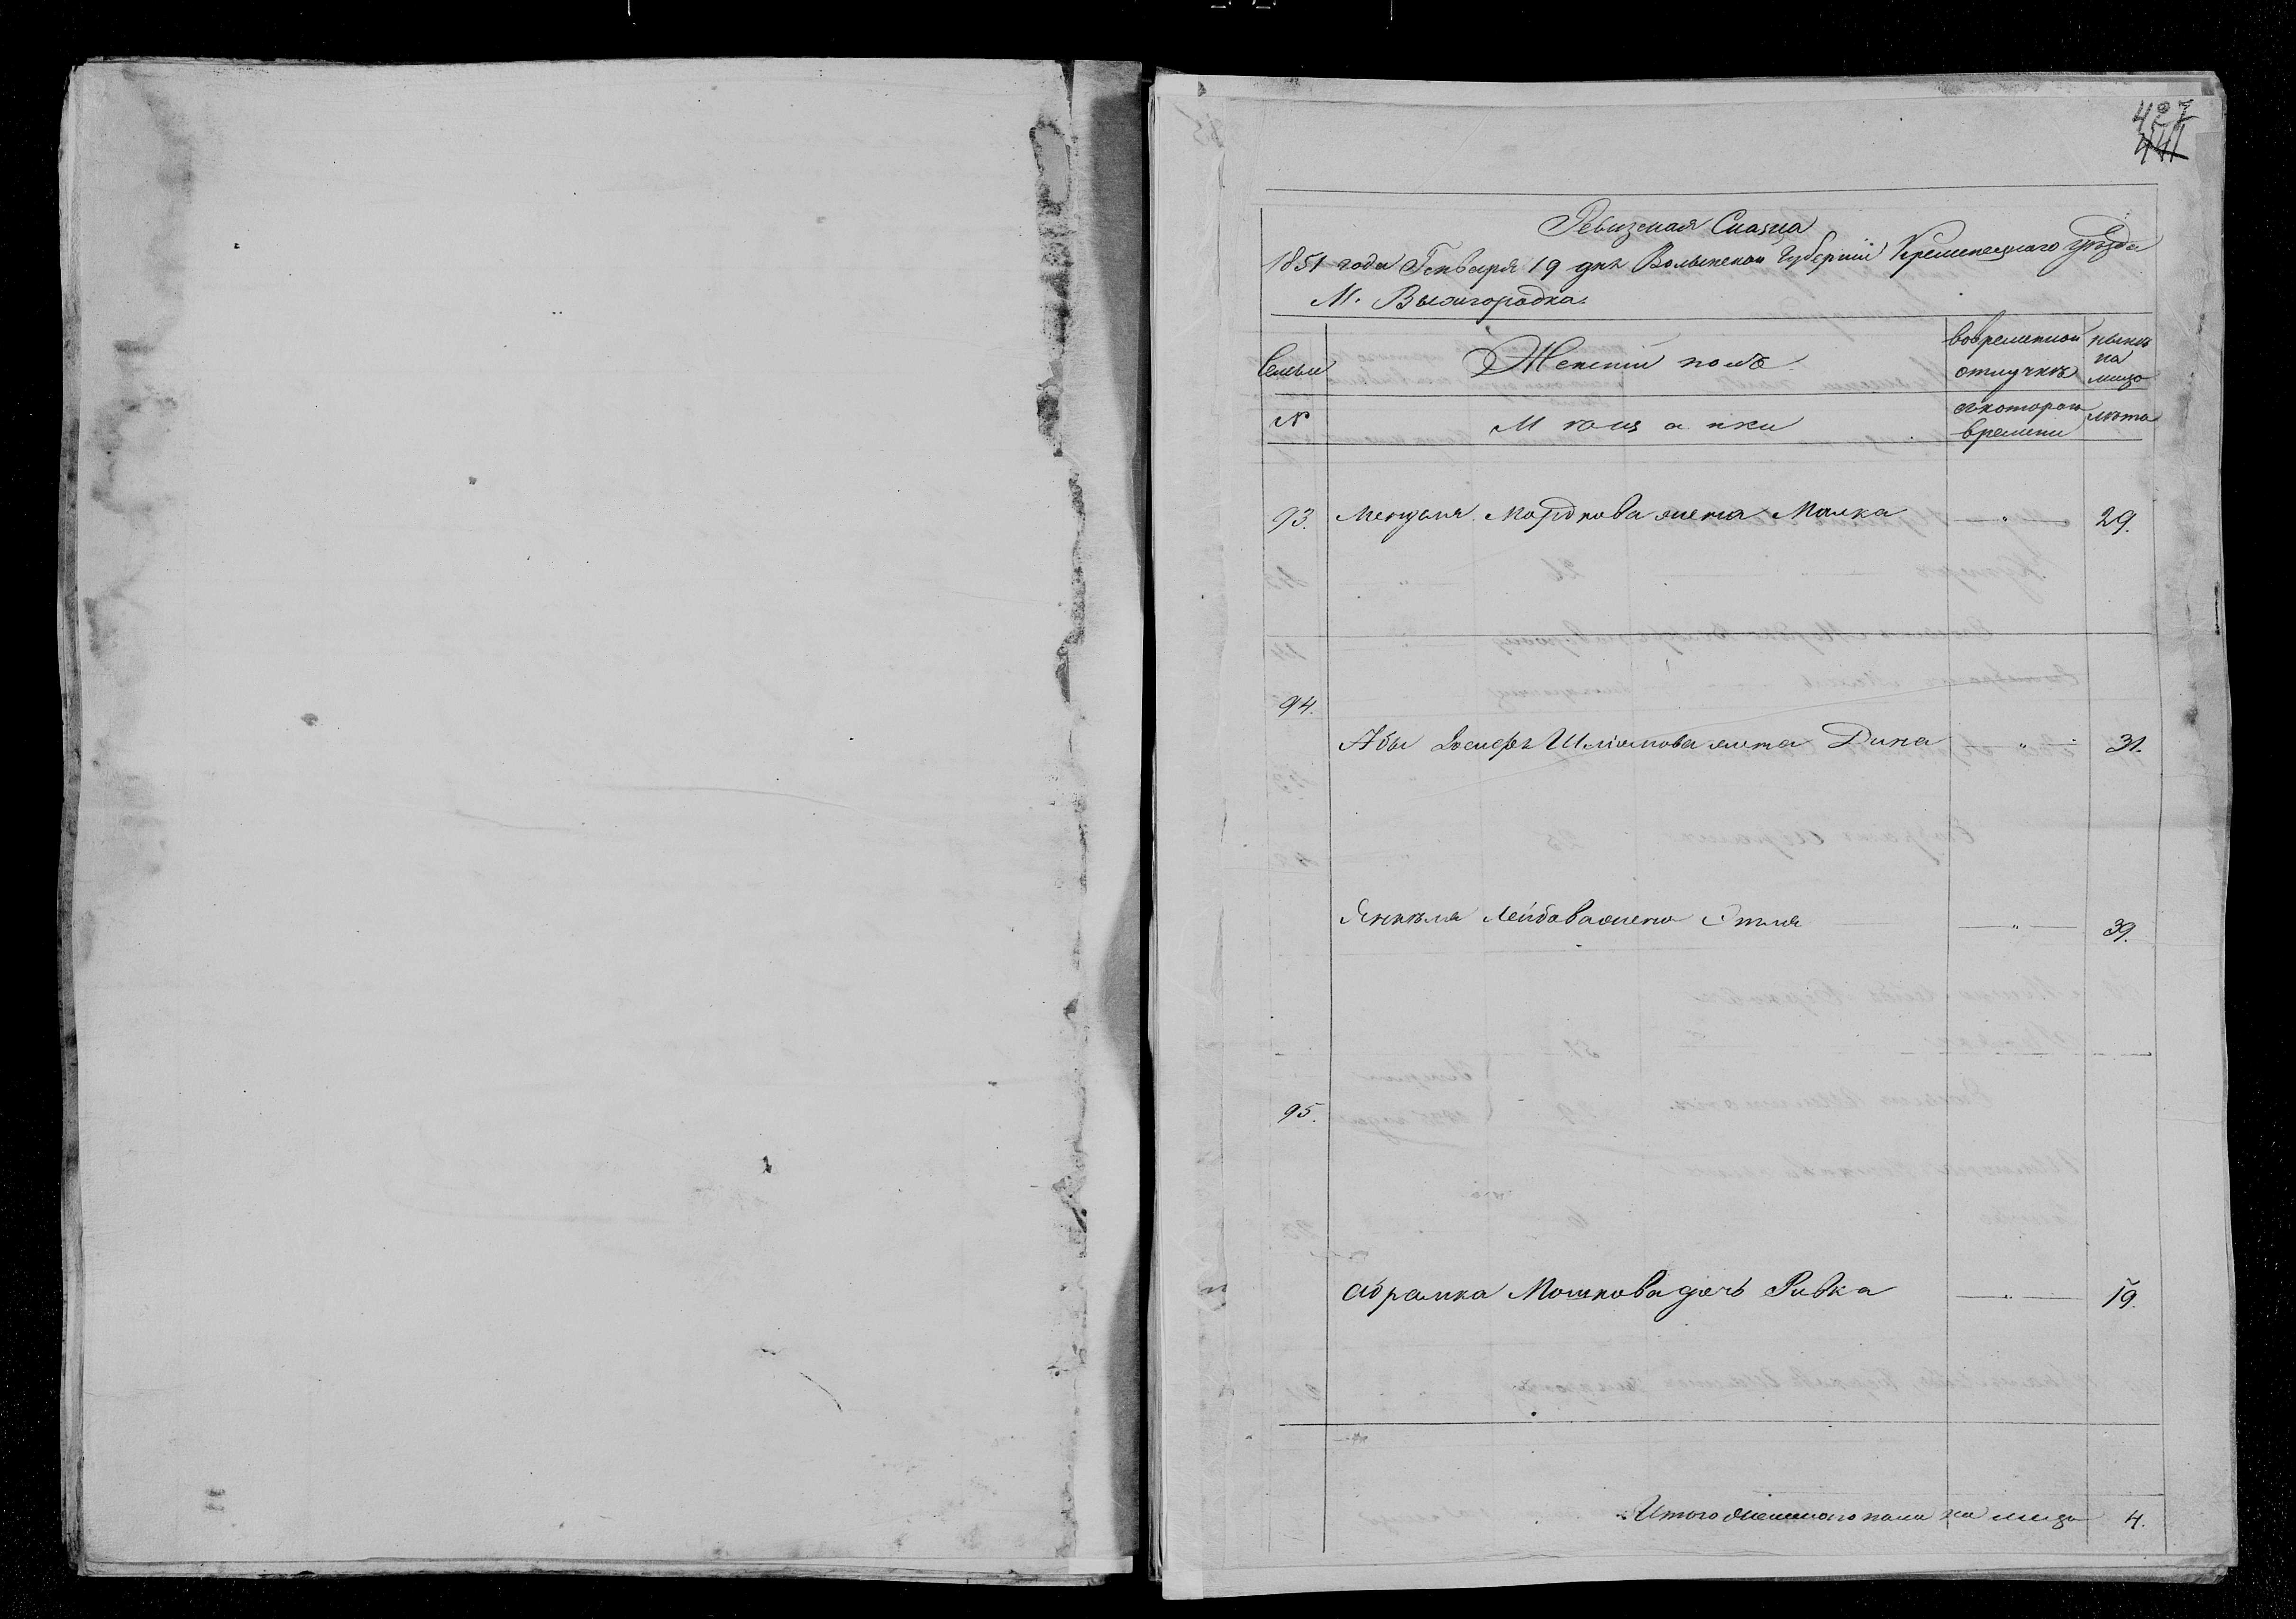 427
441
Ревизская Сказка
1851 года Генваря 19 дня Волынской Губернии Кременецкаго уѣзда
М. Вышгородка.
Семьи
Женскій полъ
вовременной отлучкѣ
нынѣ на лицо
№
Мѣщанки
съ котораго времени
лѣта
93. Менделя Мордкова жена Малка — " — 29.
94.
Абы Іосифа Шліомова жена Дина — " — 31.
Янкеля Лейбова жена Этля — " — 39.
95.
Абрамка Мошкова дочь Ривка — " — 19.
Итого женскаго пола на лицо 4.